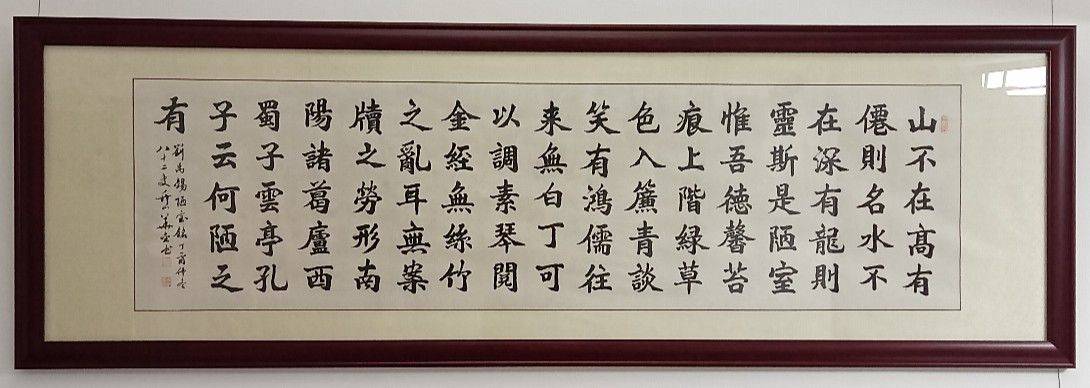 山不在高有
僊則名水不
在深有龍則
靈斯是陋室
惟吾德馨苔
痕上階緑草
色入簾青談
笑有鴻儒往
来無白丁可
以調素琴閱
金經無絲竹
之亂耳無案
牘之勞形南
陽諸葛廬西
蜀子雲亭孔
子云何陋之
有
劉禹錫陋室銘丁酉仲冬
八十二叟